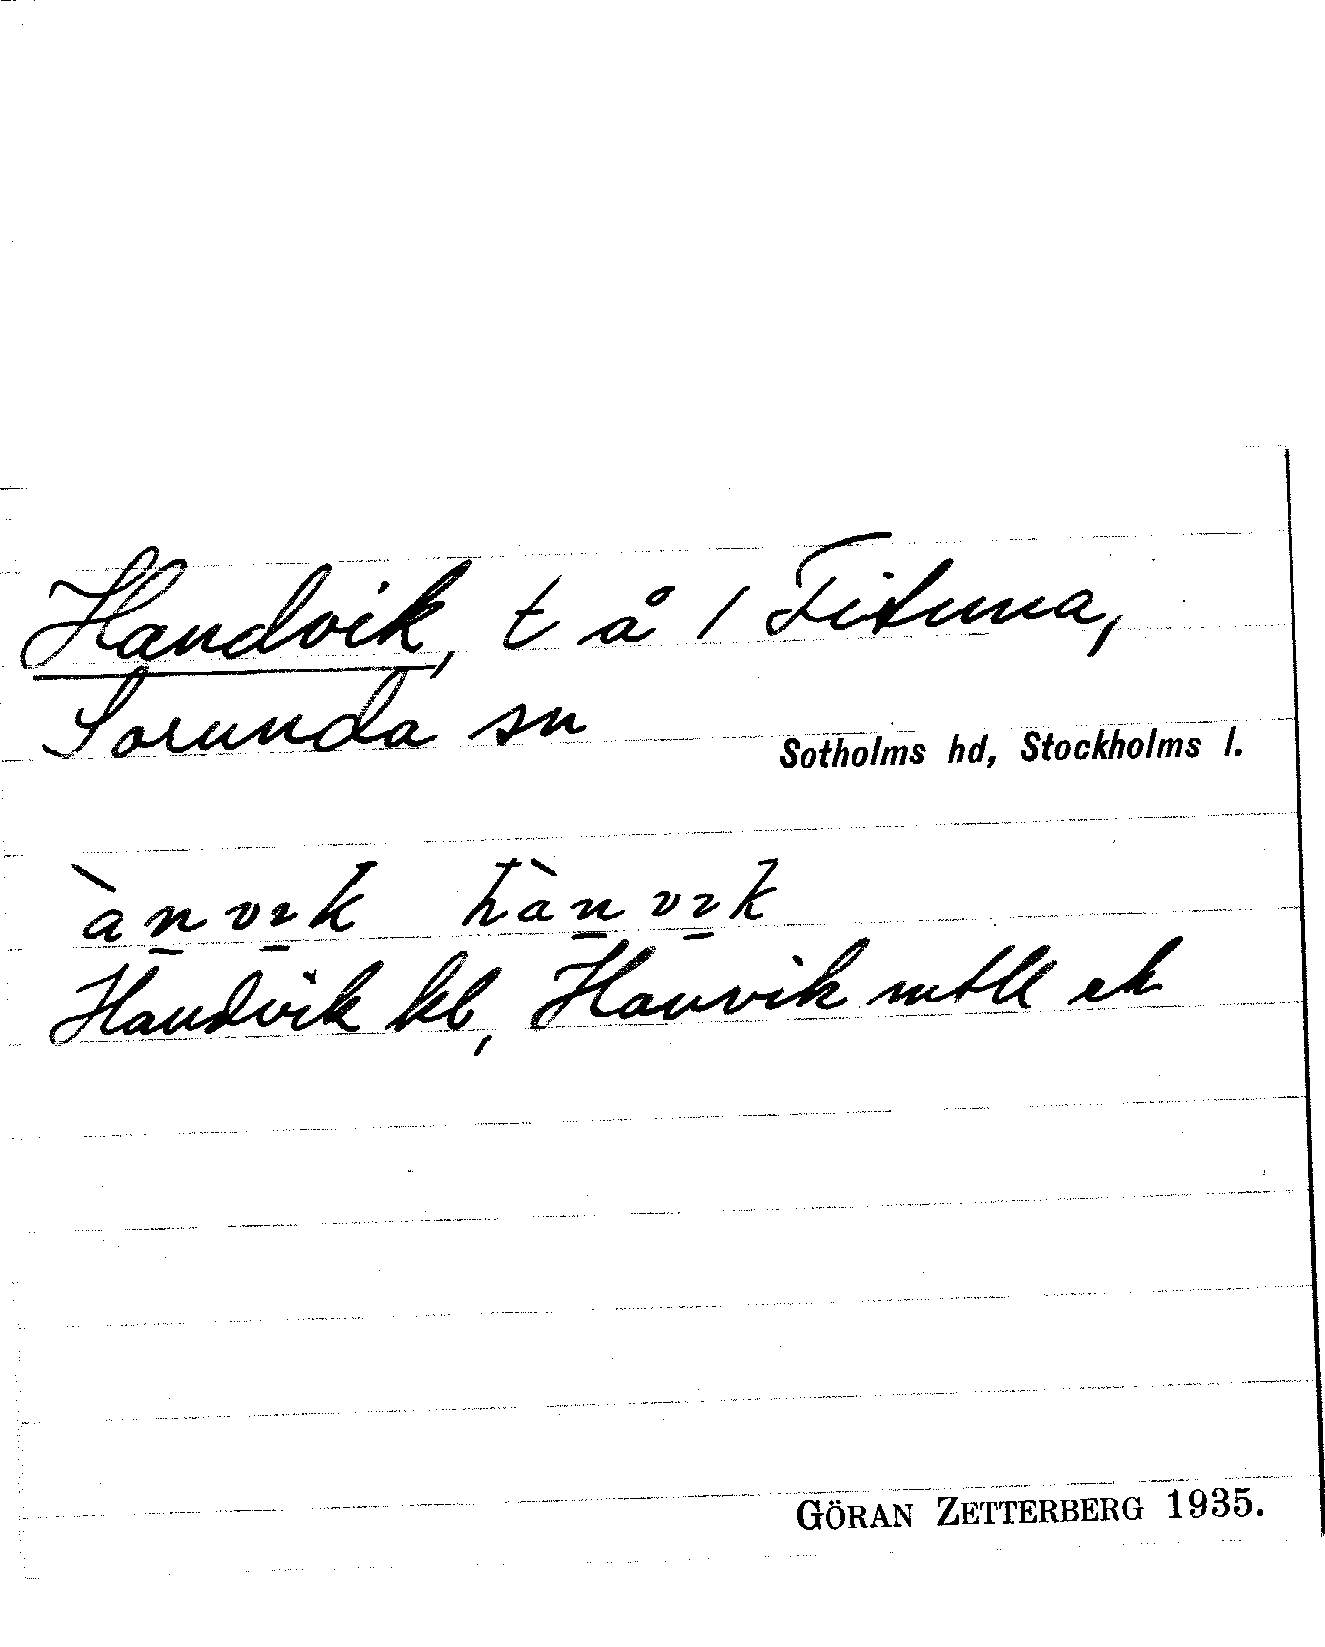 Handvik, t å / Fituna,
Sorunda sn
Sotholms hd, Stockholms l.
àn̲vɪ̲k hàn̲vɪ̲k
Handvik kb, Hanvik mtll ek
GÖRAN ZETTERBERG 1935.